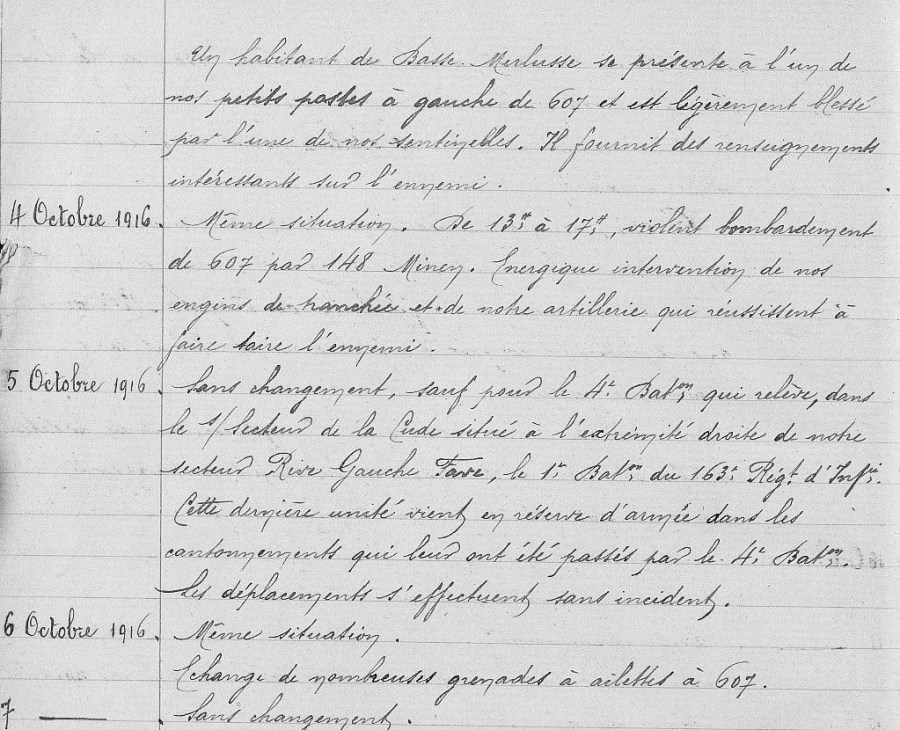 Un habitant de Basse Merlusse se présente à l'un de
nos petits postes à gauche de 607 et est légèrement blessé
par l'une de nos sentinelles. Il fournit des renseignements
intéressants sur l'ennemi.
4 Octobre 1916. Même situation. De 13h à 17h, violent bombardement
de 607 par 148 Minen. Energique intervention de nos
engins de tranchée et de notre artillerie qui réussissent à
faire taire l'ennemi.
5 Octobre 1916. Sans changement, sauf pour le 4e Baton qui relève, dans
le S/Secteur de la Cude situé à l'extrémité droite de notre
secteur Rive Gauche Fave, le 1er Baton du 163e Régt d'Infie.
Cette dernière unité vient en réserve d'armée dans les
cantonnements qui leur ont été passés par le 4e Baton.
Les déplacements s'effectuent sans incident.
6 Octobre 1916. Même situation.
Echange de nombreuses grenades à ailettes à 607.
7 — Sans changement.